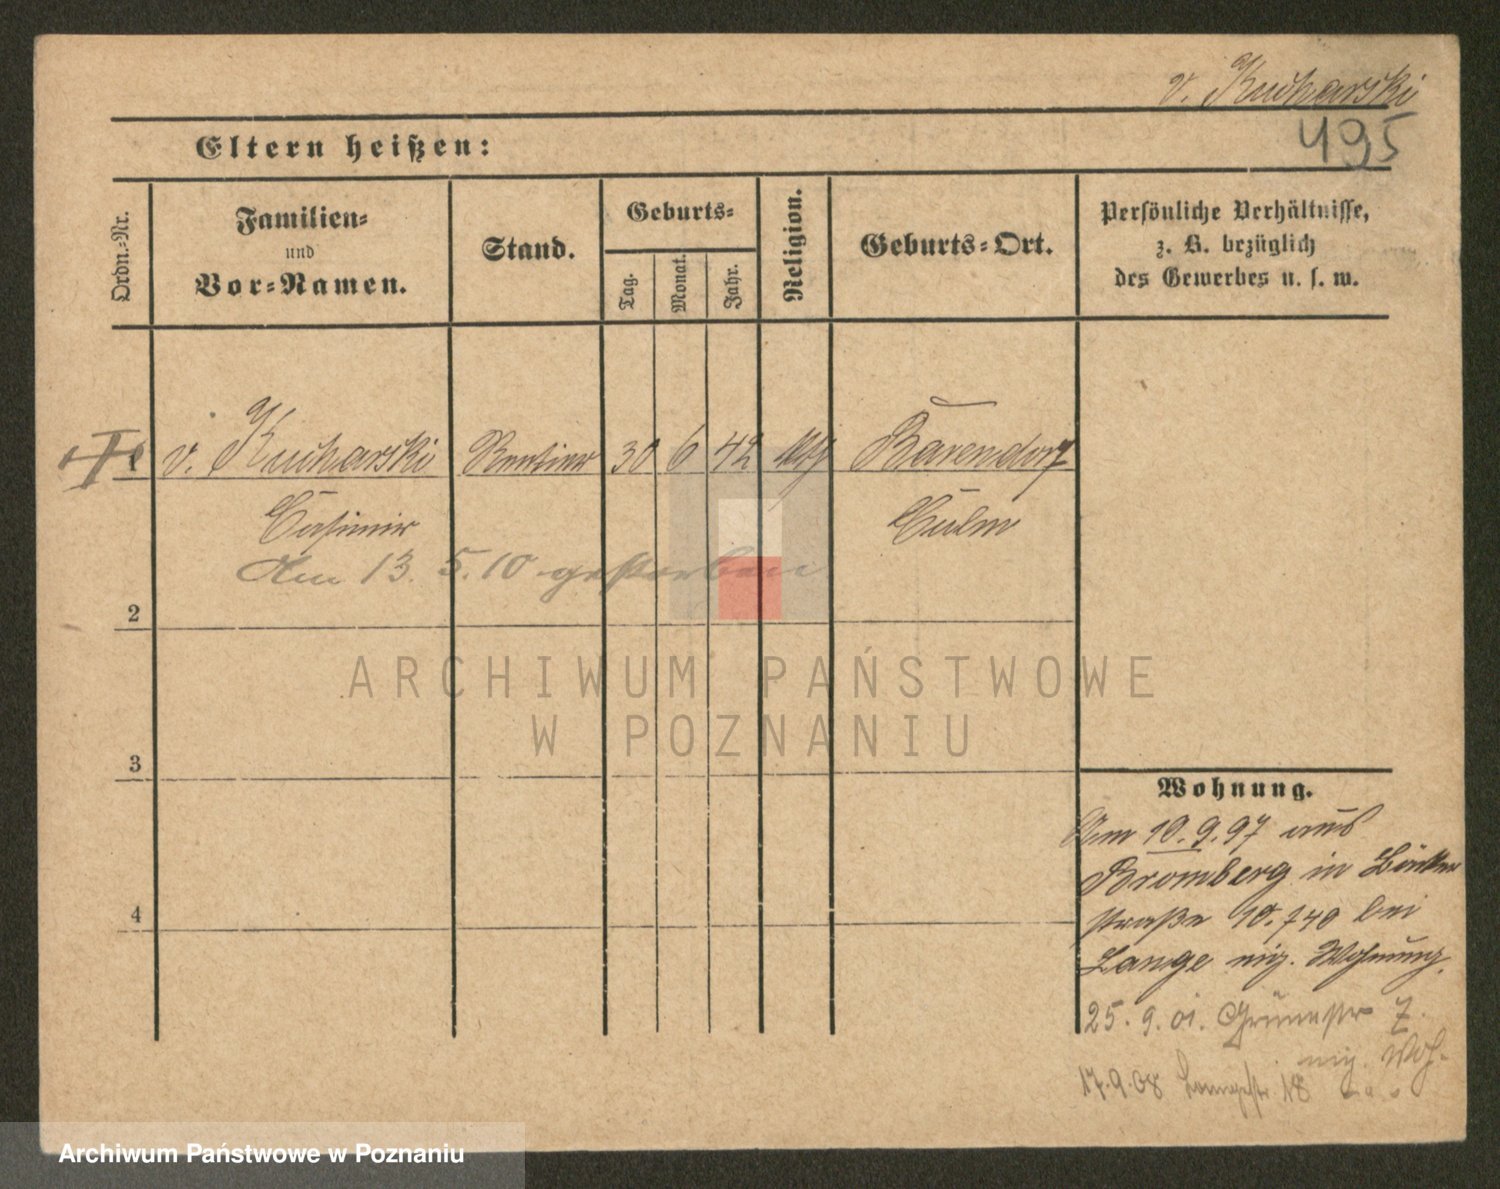 v. Kucharski
495
Eltern heißen:
Ordn.-Nr.
Familien-
und
Vor-Namen.
Stand.
Geburts-
Tag.
Monat.
Jahr.
Religion.
Geburts-Ort.
Persönliche Verhältnisse,
z. B. bezüglich
des Gewerbes u. s. w.
1 v. Kucharski Rentier 30 6 42 Barendorf
Casimir Culm
Am 13. 5. 10 gestorben
2
ARCHIWUM PAŃSTWOWE
W POZNANIU
3
Wohnung.
Am 10. 9. 97 aus
Bromberg in
straße bei
Lange eig. Wohnung.
4
25. 9. 01. Grünestr 7.
eig. Woh.
17. 9. 08 Langestr. 18
Archiwum Państwowe w Poznaniu